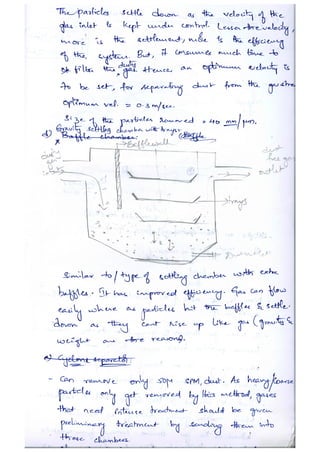 The particles settle down as the velocity of the
gas inlet is kept under control. Lesser the velocity,
more is the settlement, more is the efficiency
of the system. But, it consumes much time to
filter the dusty gas. Hence an optimum velocity is
to be set, for separating dust from the gas stream
optimum vel. = 0.3m/sec.
Size of the particles removed > 40 mm/μm.
Gravity settling chamber with trays
d) Baffle chamber:
Baffle wall
dust
gas
inlet
dust
free gas
outlet
trays
Similar to / type of settling chamber with extra
baffles. It has improved efficiency. Gas can flow
easily where as particles hit the baffles & settle
down as they cant rise up like gas (gravity &
weight are the reasons).
e) Cyclone separator:
- Can remove only SPM, dust. As heavy/coarse
particles only get removed by this method, gases
that need future treatment should be given
preliminary treatment by sending them into
these chambers